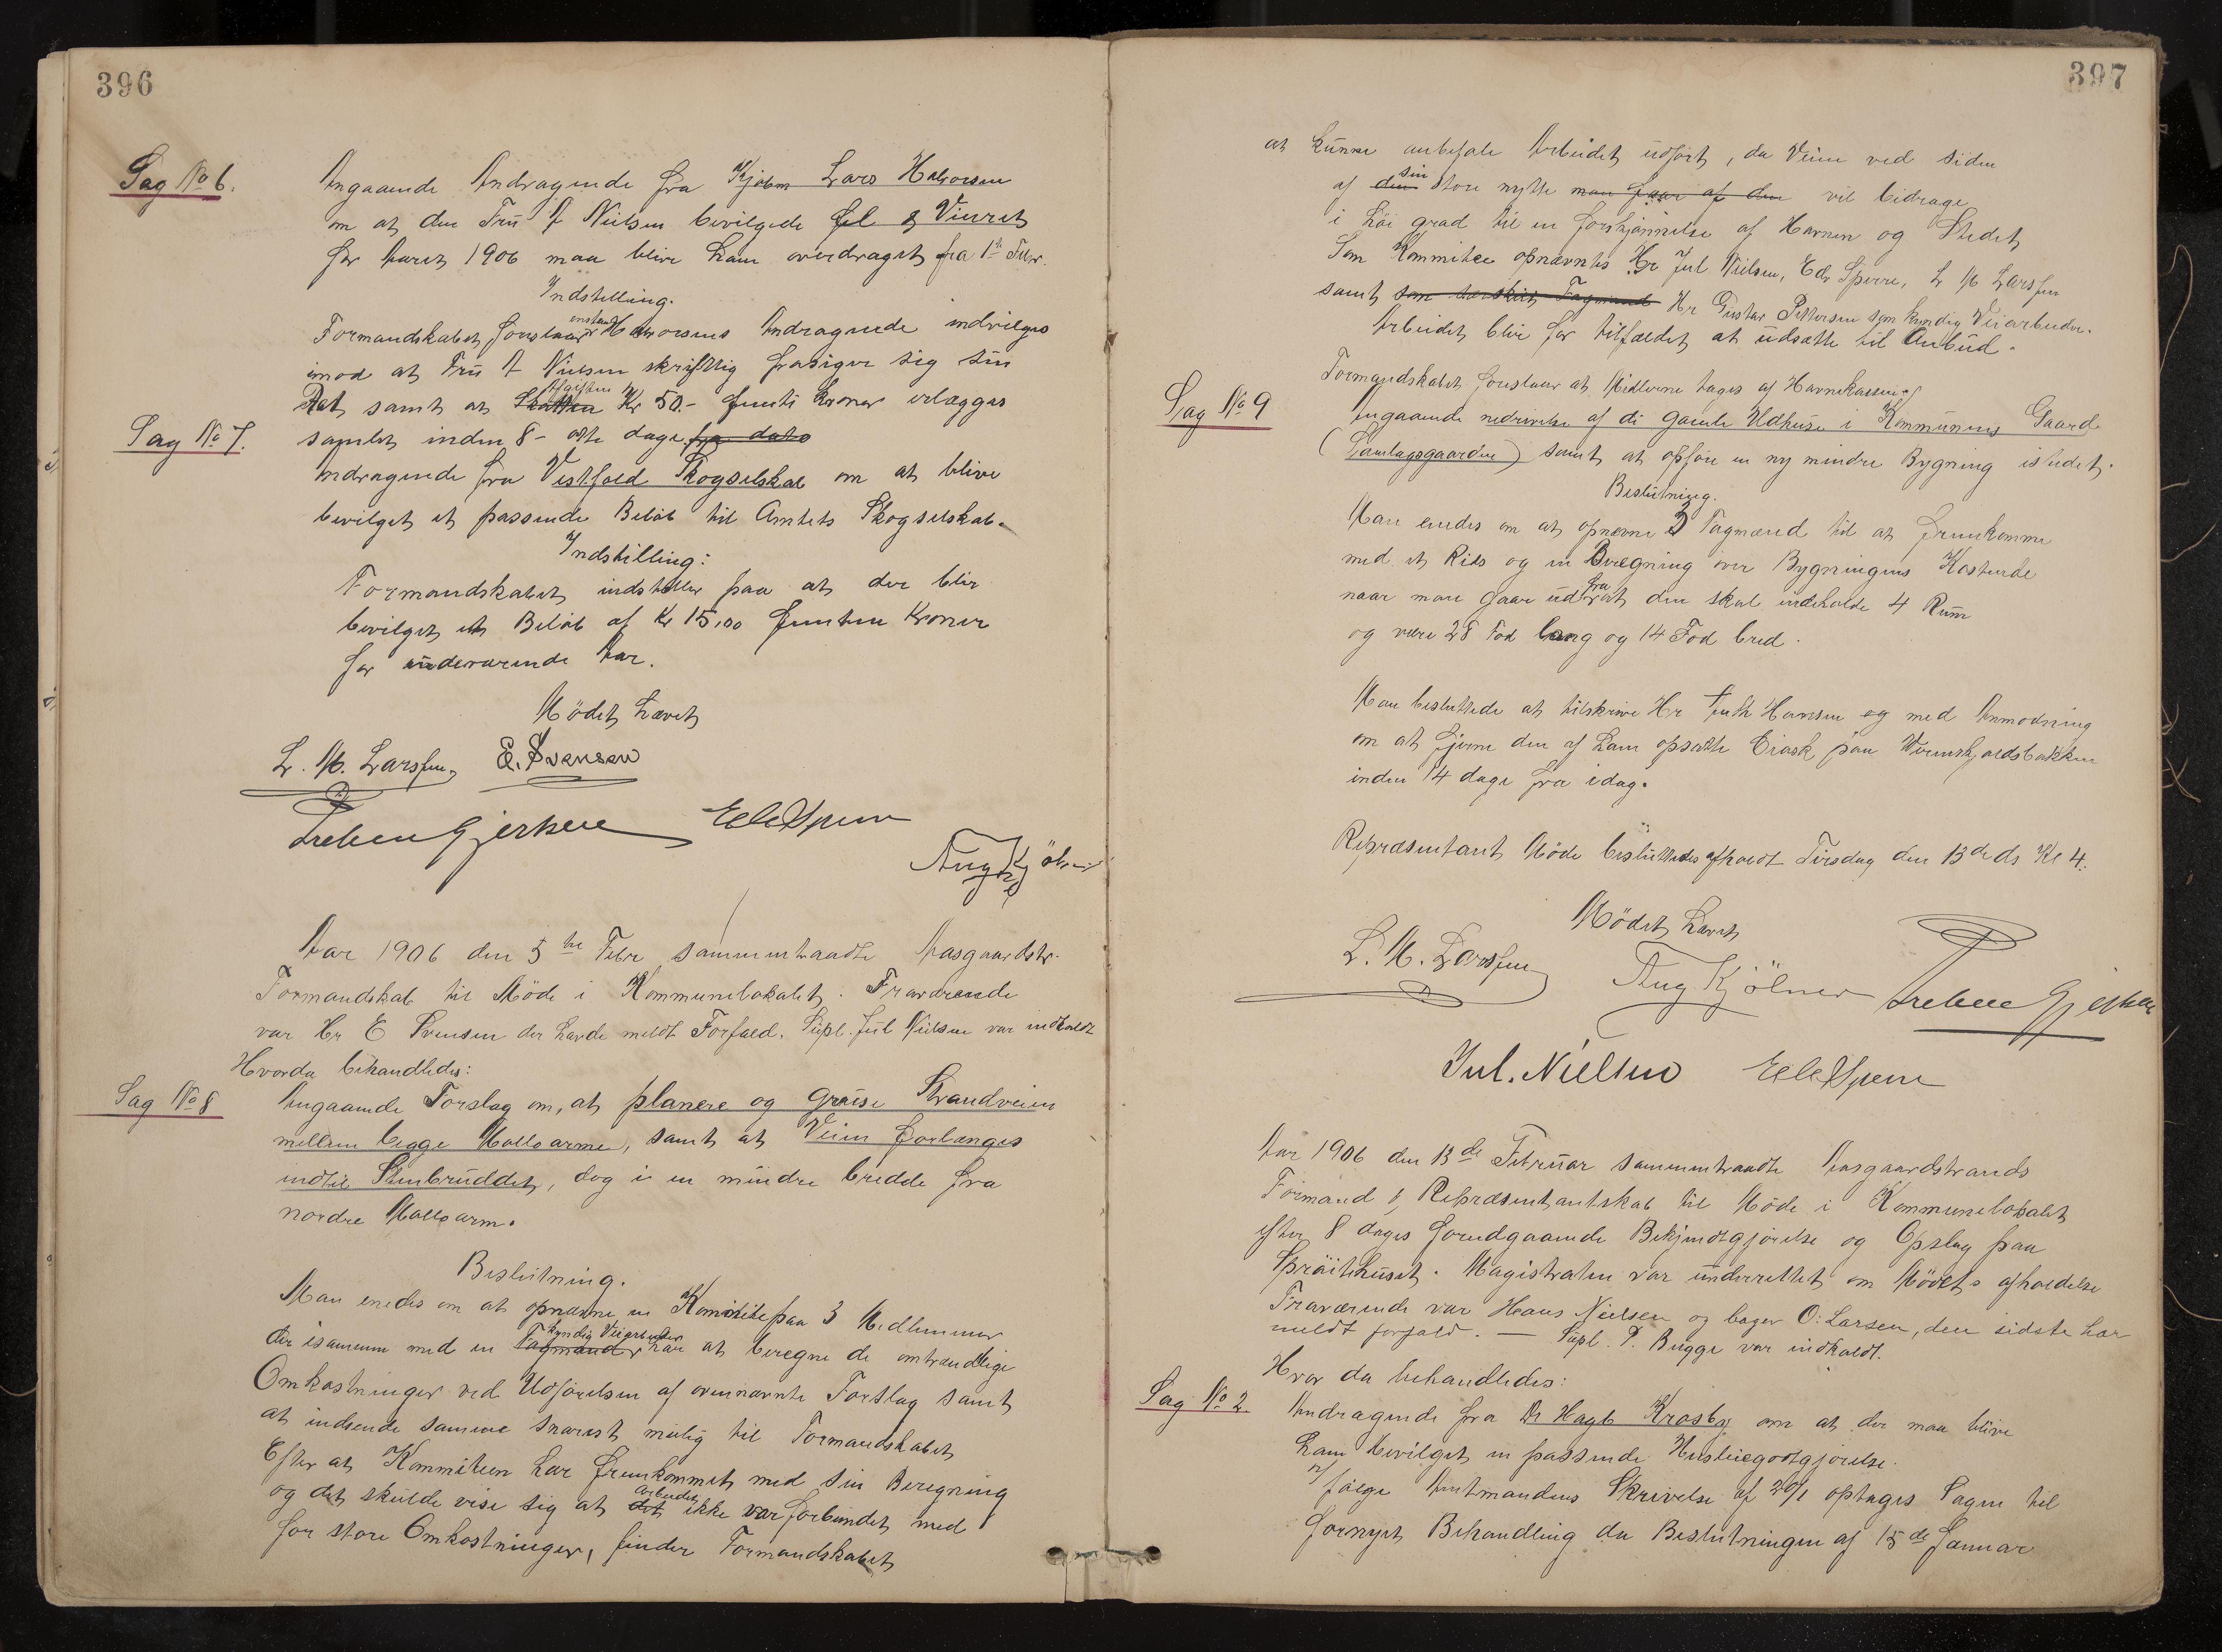 396
Sag No 6.
Angaaende Andragende fra Kjøbm Lars Halvorsen
om at den Fru A Nielsen bevilgede Øl & Vinret
for Aaret 1906 maa blive ham overdraget fra 1ste Febr.
Indstilling.
Formandskabet foreslaar Halvorsens Andragende indvilges
imod at Fru A Nielsen skriftlig frasiger sig sin
Ret samt at Afgiften Kr 50.- femti Kroner erlægges
Sag No 7.
samlet inden 8 - otte dage fra dato
Andragende fra Vestfold Skogselskab om at blive
bevilget et passende Beløb til Amtets Skogselskab.
Indstilling:
Formandskabet indstiller paa at der blir
bevilget et Beløb af Kr 15,00 femten Kroner
for indeværende Aar.
Mödet hævet
L. M. Larssen. E. Svensen
Preben Gjersøe Edv Sperre
Aug Kjölner
Aar 1906 den 5te Febr sammentraadte Aasgaardstr.
Formandskab til Möde i Kommunelokalet. Fraværende
var Hr E Svensen der havde meldt Forfald. Supl. Jul Nielsen var indkaldt
Hvorda behandledes:
Sag No 8
Angaaende Forslag om, at planere og gruse Strandveien
mellem begge Molloarme, samt at Veien forlænges
indtil Stenbruddet, dog i en mindre bredde fra
nordre Molloarm.
Beslutning.
Man enedes om at opnævne en Komitee paa 3 Medlemmer
kyndig Veiarbeider
der isammen med en Fagmand har at beregne de omtrendtlige
Omkostninger ved Udførelsen af ovennævnte Forslag samt
at indsende samme snarest mulig til Formandskabet
Efter at Kommiteen har fremkommet med sin Beregning
arbeidet
og det skulde vise sig at det ikke var forbundet med
for store Omkostninger, finder Formandskabet
397
at kunne anbefale Arbeidet udført, da Veien ved siden
sin
af den store nytte man faar af den vil bidrage
i høi grad til en forskjønnelse af Havnen og Stedet
Som Kommitee opnævntes Hr Jul. Nielsen, Edv Sperre, L M Larssen
samt som Fagmand Hr Gustav Pettersen som kyndig Veiarbeider.
Arbeidet blir for tilfældet at udsætte til Anbud.
Formandskabet foreslaar at Midlerne tages af Havnekassen.
Sag No 9
Angaaende nedrivelse af de gamle Udhuse i Kommunens Gaard
(Samlagsgaarden) samt at opføre en ny mindre Bygning istedet.
Beslutning.
Man enedes om at opnævne 3 Fagmænd til at fremkomme
med et Rids og en Beregning over Bygningens Kostende
fra
naar man gaar ud at den skal indeholde 4 Rum
og være 28 Fod lang og 14 Fod bred.
Man besluttede at tilskrive Hr Anth Hansen og med Anmodning
om at fjerne den af ham opsatte Kiosk paa
inden 14 dage fra idag.
Repræsentant Möde besluttedes afholdt Tirsdag den 13de ds Kl 4.
Mödet hævet
L. M. Larssen Aug Kjölner Preben Gjersøe
Jul. Nielsen Edv Sperre
Aar 1906 den 13de Februar sammentraadte Aasgaardstrands
Formand & Repræsentantskab til Möde i Kommunelokalet
efter 8 dages forudgaaende Bekjendtgjørelse og Opslag paa
Spröitehuset. Magistraten var underrettet om Mödets afholdelse
Fraværende var Hans Nielsen og bager O. Larsen, den sidste har
meldt forfald. — Supl. P. Bugge var indkaldt.
Hvor da behandledes:
Sag No 2.
Andragende fra Dr Hagb Krosby om at der maa blive
ham bevilget en passende Husleiegodtgjørelse.
Ifølge Amtmandens Skrivelse af 20/1 optages Sagen til
fornyet Behandling da Beslutningen af 15de Januar